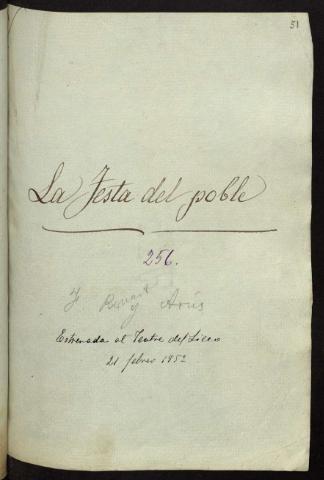 51
La Festa del poble
256.
F Renart y Arús
Estrenada al Teatre del Liceo
21 febrer 1852